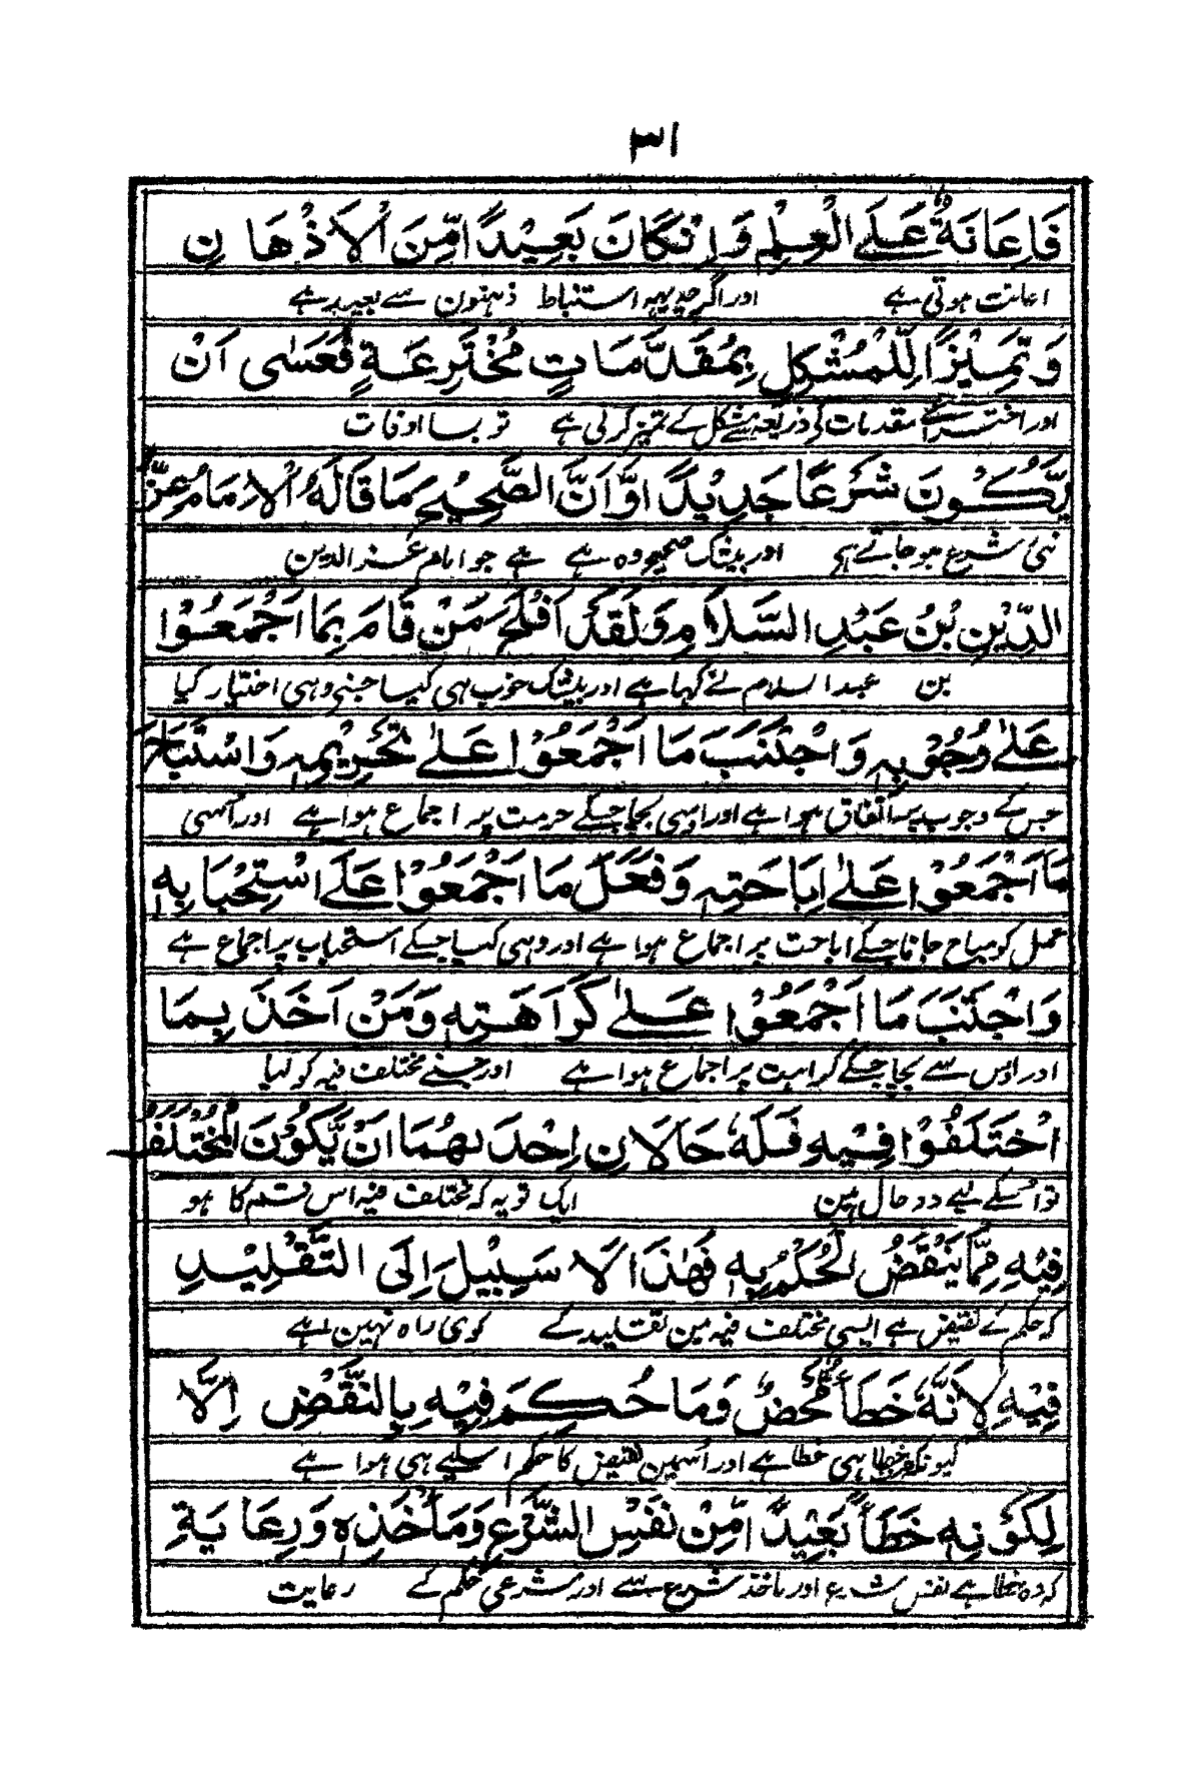 ۳۱
فَاِعَانَةٌ عَلَى الْعِلْمِ وَاِنْ كَانَ بَعِيْدًا مِّنَ الْاَذْهَانِ
اعانت ہوتی ہے اور اگرچہ یہہ استنباط ذہنون سے بعید ہے
وَتَمِيْزًا لِّلْمُشْكِلِ بِمُقَدَّمَاتٍ مُخْتَرِعَةٍ فَعَسٰى اَنْ
اور اختراعے مقدمات کی ذریعہ مشکل کے تمیز کرلی ہے تو بسا اوقات
يَّكُوْنَ شَرْعًا جَدِيْدًا وَّاَنَّ الصَّحِيْحَ مَا قَالَهُ الْاِمَامُ عِزُّ
نئی شرع ہو جاتے ہی اور بیشک صحیح وہ ہے ہے جو امام عز الدین
الدِّيْنِ بْنُ عَبْدِ السَّلَامِ وَلَقَدْ اَفْلَحَ مَنْ قَامَ بِمَا اَجْمَعُوْا
بن عبد السلام نے کہا ہے اور بیشک خوب ہی کیا جسنے وہی اختیار کیا
عَلٰى وُجُوْبِهٖ وَاجْتَنَبَ مَا اَجْمَعُوْا عَلٰى تَحْرِيْمِهٖ وَاسْتَبَاحَ
جس کے وجوب پر اتفاق ہوا ہے اور وہی بچا جسکے حرمت پر اجماع ہوا ہے اور اُسی
مَا اَجْمَعُوْا عَلٰى اِبَاحَتِهٖ وَفَعَلَ مَا اَجْمَعُوْا عَلَى اسْتِحْبَابِهٖ
عمل کو مباح جانا جسکے اباحت پر اجماع ہوا ہے اور وہی کیا جسکے استحباب پر اجماع ہے
وَاجْتَنَبَ مَا اَجْمَعُوْا عَلٰى كَرَاهَتِهٖ وَمَنْ اَخَذَ بِمَا
اور اوس سے بچا جسکے کراہت پر اجماع ہوا ہے اور جسنے مختلف فیہ کو لیا
اخْتَلَفُوْا فِيْهِ فَلَهٗ حَالَانِ اِحْدٰىهُمَا اَنْ يَّكُوْنَ الْمُخْتَلَفُ
تو اُسکے لیے دو حال ہین ایک تو یہ کہ مختلف فیہ اس قسم کا ہو
فِيْهِ مِمَّا يَنْقُضُ الْحُكْمُ بِهٖ فَهٰذَا لَا سَبِيْلَ اِلَى التَّقْلِيْدِ
کہ حکم کے نقیض ہے ایسی مختلف فیہ مین تقلید کے کوی راہ نہین ہے
فِيْهِ لِاَنَّهٗ خَطَأٌ مَّحْضٌ وَمَا حُكِمَ فِيْهِ بِالنَّقْضِ اِلَّا
کیونکہ خطا ہی خطا ہے اور اُسمین نقیض کا حکم اسلیے ہی ہوا ہے
لِكَوْنِهٖ خَطَأً بَعِيْدًا مِّنْ نَفْسِ الشَّرْعِ وَمَأْخَذِهٖ وَرِعَايَةِ
کہ وہ خطا ہے نفس شرع اور ماخذ شرع سے اور شرعی حکم کے رعایت